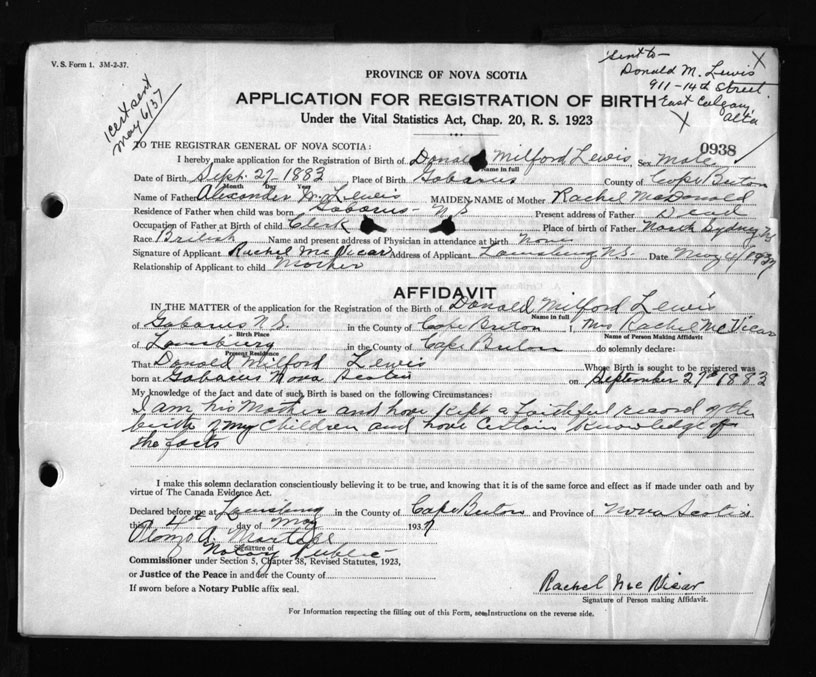 V. S. Form 1. 3M-2-37.
1 cert sent
May 6/37
sent to
Donald M. Lewis
911-14th Street
East Calgary
Alta
X
X
PROVINCE OF NOVA SCOTIA
APPLICATION FOR REGISTRATION OF BIRTH
Under the Vital Statistics Act, Chap. 20, R. S. 1923
0938
TO THE REGISTRAR GENERAL OF NOVA SCOTIA:
I hereby make application for the Registration of Birth of Donald Milford Lewis Sex Male
Name in full
Date of Birth Sept. 27 1883 Place of Birth Gabarus County of Cape Breton
Month Day Year
Name of Father Alexander M. Lewis MAIDEN NAME of Mother Rachel McDonald
Residence of Father when child was born Gabarus N S Present address of Father Dead
Occupation of Father at Birth of child Clerk Place of birth of Father North Sydney NS
Race British Name and present address of Physician in attendance at birth None
Signature of Applicant Rachel McVicar Address of Applicant Louisburg N.S. Date May 4/1937
Relationship of Applicant to child Mother
AFFIDAVIT
IN THE MATTER of the application for the Registration of the Birth of Donald Milford Lewis
Name in full
of Gabarus N.S. in the County of Cape Breton I, Mrs Rachel McVicar
Birth Place Name of Person Making Affidavit
of Louisburg in the County of Cape Breton do solemnly declare:
Present Residence
That Donald Milford Lewis Whose Birth is sought to be registered was
born at Gabarus Nova Scotia on September 27th 1883
My knowledge of the fact and date of such Birth is based on the following Circumstances:
I am his Mother and have kept a faithful record of the
birth of my Children and have certain knowledge of
the facts
I make this solemn declaration conscientiously believing it to be true, and knowing that it is of the same force and effect as if made under oath and by
virtue of The Canada Evidence Act.
Declared before me at Louisburg in the County of Cape Breton and Province of Nova Scotia
this 4th day of May 1937
Alonzo A. Martell
Signature of
Notary Public
Commissioner under Section 5, Chapter 38, Revised Statutes, 1923,
or Justice of the Peace in and for the County of
If sworn before a Notary Public affix seal.
Rachel McVicar
Signature of Person making Affidavit.
For Information respecting the filling out of this Form, see Instructions on the reverse side.